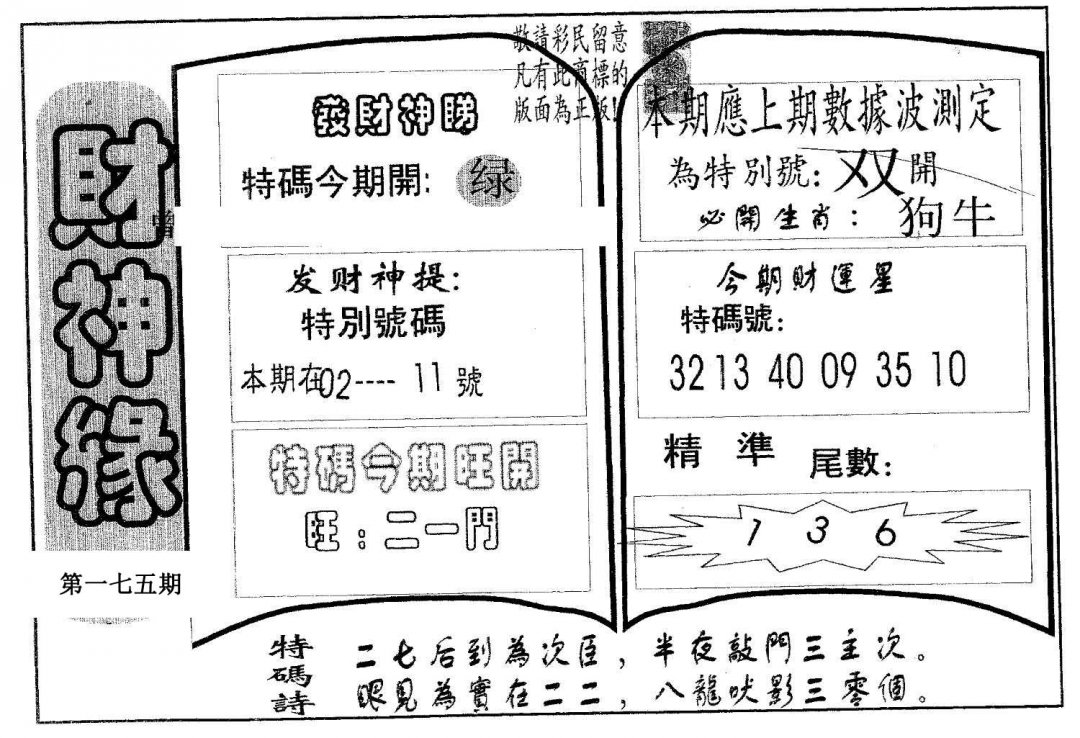 財神緣
第一七五期
敬請彩民留意
凡有此商標的
版面為正版!
發財神睇
特碼今期開: 绿
发财神提:
特別號碼
本期在02----11號
特碼今期旺開
旺:二一門
本期應上期數據波測定
為特別號: 双開
必開生肖: 狗牛
今期財運星
特碼號:
32 13 40 09 35 10
精準 尾數:
1 3 6
特碼詩
二七后到為次臣,半夜敲門三主次。
眼見為實在二二,八龍吠影三零個。